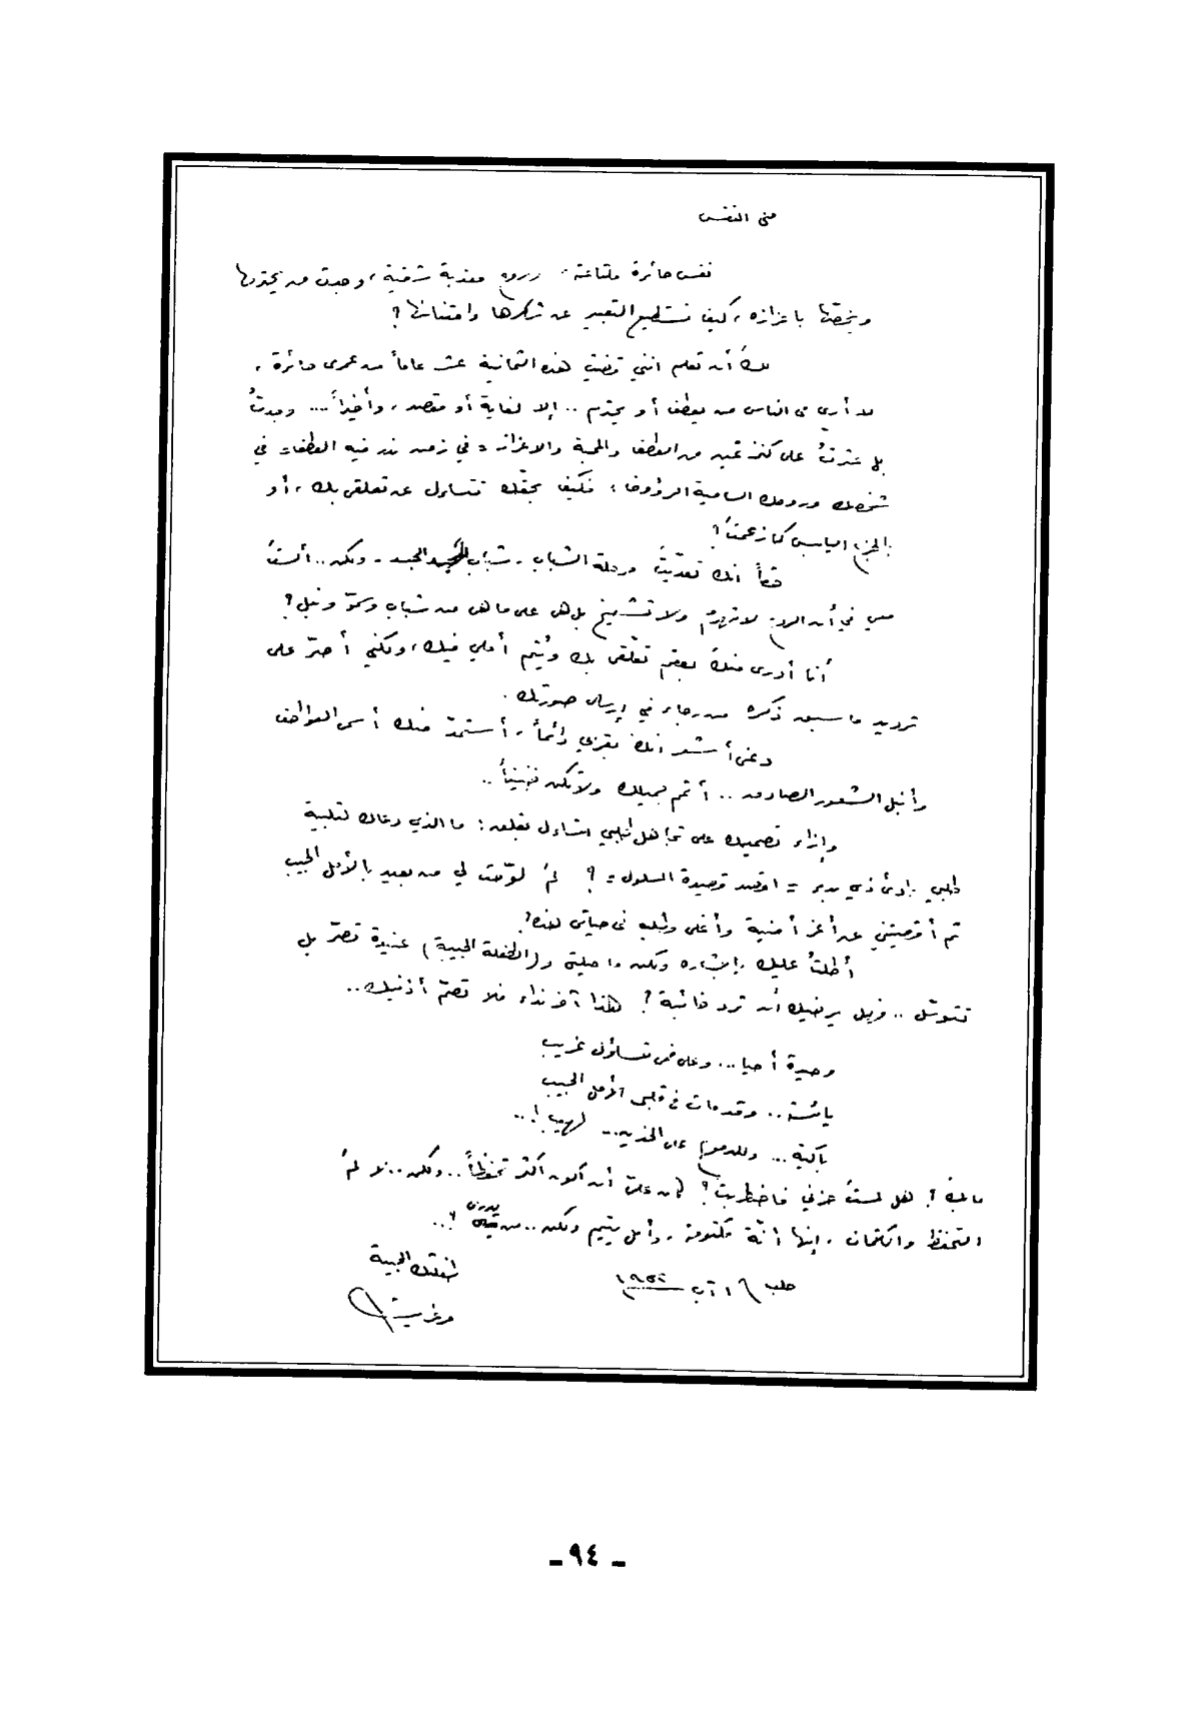 منى النفس
نفس حائرة ملتاعة، وروح معذبة شقية، وجدت من يحترمها
ويخصّها باعزازه، كيف تستطيع التعبير عن شكرها وامتنانها؟
لكَ أن تعلم انني قضيت هذه الثمانية عشر عاماً من عمري حائرة،
لا أرى في الناس من يعطف أو يحترم .. إلا لغاية أو مقصد، وأخيراً .... وجدتُ
بل عثرتُ على كنز ثمين من العطف والمحبة والاعزاز = في زمن ندر فيه العطف = في
شخصك وروحك السامية الرؤوف، فكيف بحقّك تتساءل عن تعلقي بك، أو
بالجزء اليابس كما زعمتَ؟
حقاً انك تعديتَ مرحلة الشباب - شباب الجسد - ولكن .. ألستَ
معي في أن الروح لا تهرم ولا تشيخ بل هي على ما هي من شباب وسموّ ونبل؟
أنا أدرى منكَ بعقم تعلّقي بك ويُتم أملي فيك، ولكني أصرّ على
ترديد ما سبق ذكره من رجاء في إرسال صورتك.
دعني أشعر انكَ بقربي دائماً، أستمدّ منك أسمى العواطف
وأنبل الشعور الصادق .. أتم جميلك ولا تكن ضنيناً ..
وإزاء تصميمك على تجاهل طلبي اتساءل بقلق: ما الذي دعاك لتلبية
طلبي بادئ ذي بدء = اقصد قصيدة السلول = ? لمَ لوّحت لي من بعيد بالأمل الحبيب
ثم أقصيتني عن أعز أمنية وأغلى وطلبه في حياتي هذه؟
أطلتُ عليك بإلحاحي ولكن ما حيلتي و(الطفلة الحبيبة) عنيدة تصرّ بل
تتوسّل .. فهل يرضيك أن ترد خائبة؟ هذا آخر نداء فلا تصمّ أذنيك ..
وحيدة أحيا ... وعلى فمي تساؤل غريب
يائسة .. وقد مات في قلبي الأمل الحبيب
باكية ... وللدموع على الخدين .. لهيب! ..
ما بكَ؟ هل لمستَ حزني فاضطربت؟ كان عليّ أن أكون أكثر تحفظاً .. ولكن .. لا لمَ
التحفظ والكتمان، إنها أنّة مكتومة، وأمل يتيم ولكن .. من يدري ؟ ..
طفلتك الحبيبة
حلب ١٦ آب ١٩٥٢
- ٩٤ -